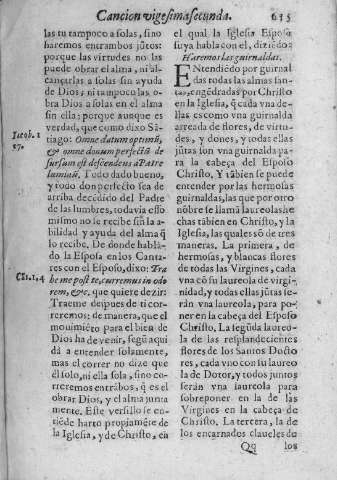 Cancion vigesimasecunda. 615
las tu tampoco a solas, sino
haremos entrambos jũtos:
porque las virtudes no las
puede obrar el alma, ni al-
cançarlas a solas sin ayuda
de Dios, ni tampoco las o-
bra Dios a solas en el alma
sin ella: porque aunque es
verdad, que como dixo Sã-
Iacob. 1
tiago: Omne datum optimũ,
17.
& omne donum perfectũ de
sursum est descendens à Patre
luminũ, Todo dado bueno,
y todo don perfecto sea de
arriba decẽdido del Padre
de las lumbres, todavia esso
mismo no se recibe sin la a-
bilidad y ayuda del alma q̃
lo recibe. De donde hablã-
do la Esposa en los Canta-
res con el Esposo, dixo: Tra
Cãt. 1, 4
he me post te, curremus in odo
rem, &c. que quiere dezir:
Traeme despues de ti cor-
remos: de manera, que el
movimiẽto para el bien de
Dios ha de venir, segũ aqui
dà a entender solamente,
mas el correr no dize que
el solo, ni ella sola, sino co-
rreremos entrãbos, q̃ es el
obrar Dios, y el alma junta
mente. Este versillo se en-
tiẽde harto propiamẽte de
la Iglesia, y de Christo, en
el qual la Iglesia Esposa
suya habla con el, diziẽdo:
Haremos las guirnaldas.
ENtendiẽdo por guirnal
das todas las almas san-
tas, engẽdradas por Christo
en la Iglesia, q̃ cada vna de-
llas es como vna guirnalda
arreada de flores, de virtu-
des, y dones, y todas ellas
jũtas son vna guirnalda pa-
ra la cabeça del Esposo
Christo. Y tãbien se puede
entender por las hermosas
guirnaldas, las que por otro
nõbre se llamã laureolas he
chas tãbien en Christo, y la
Iglesia, las quales sõ de tres
maneras. La primera, de
hermosas, y blancas flores
de todas las Virgines, cada
vna cõ su laureola de virgi-
nidad, y todas ellas jũtas se-
ràn vna laureola, para po-
ner en la cabeça del Esposo
Christo. La segũda laureo-
la de las resplandecientes
flores de los Santos Docto
res, cada vno con su laureo
la de Dotor, y todos juntos
seràn vna laureola para
sobreponer en la de las
Virgines en la cabeça de
Christo. La tercera, la de
los encarnados claveles de
Qq los